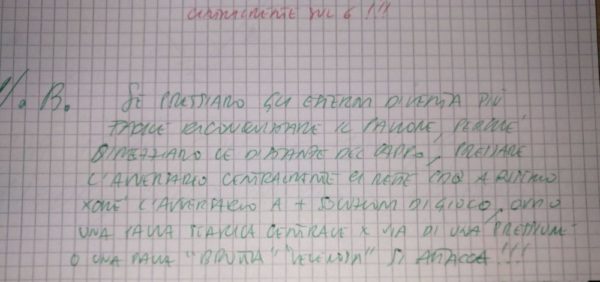 CENTRALMENTE SUL 6 !!!
N.B. SE PRESSIAMO GLI ESTERNI DIVENTA PIÙ
FACILE RICONQUISTARE IL PALLONE, PERCHÉ
DIMEZZIAMO LE DISTANZE DEL CAMPO, PRESSARE
L'AVVERSARIO CENTRALMENTE CI RENDE A RISCHIO
XCHÉ L'AVVERSARIO A + SOLUZIONI DI GIOCO, OVVIO
UNA PALLA CENTRALE X VIA DI UNA PRESSIONE
O UNA PALLA "BRUTTA" "VELENOSA" SI ATTACCA!!!